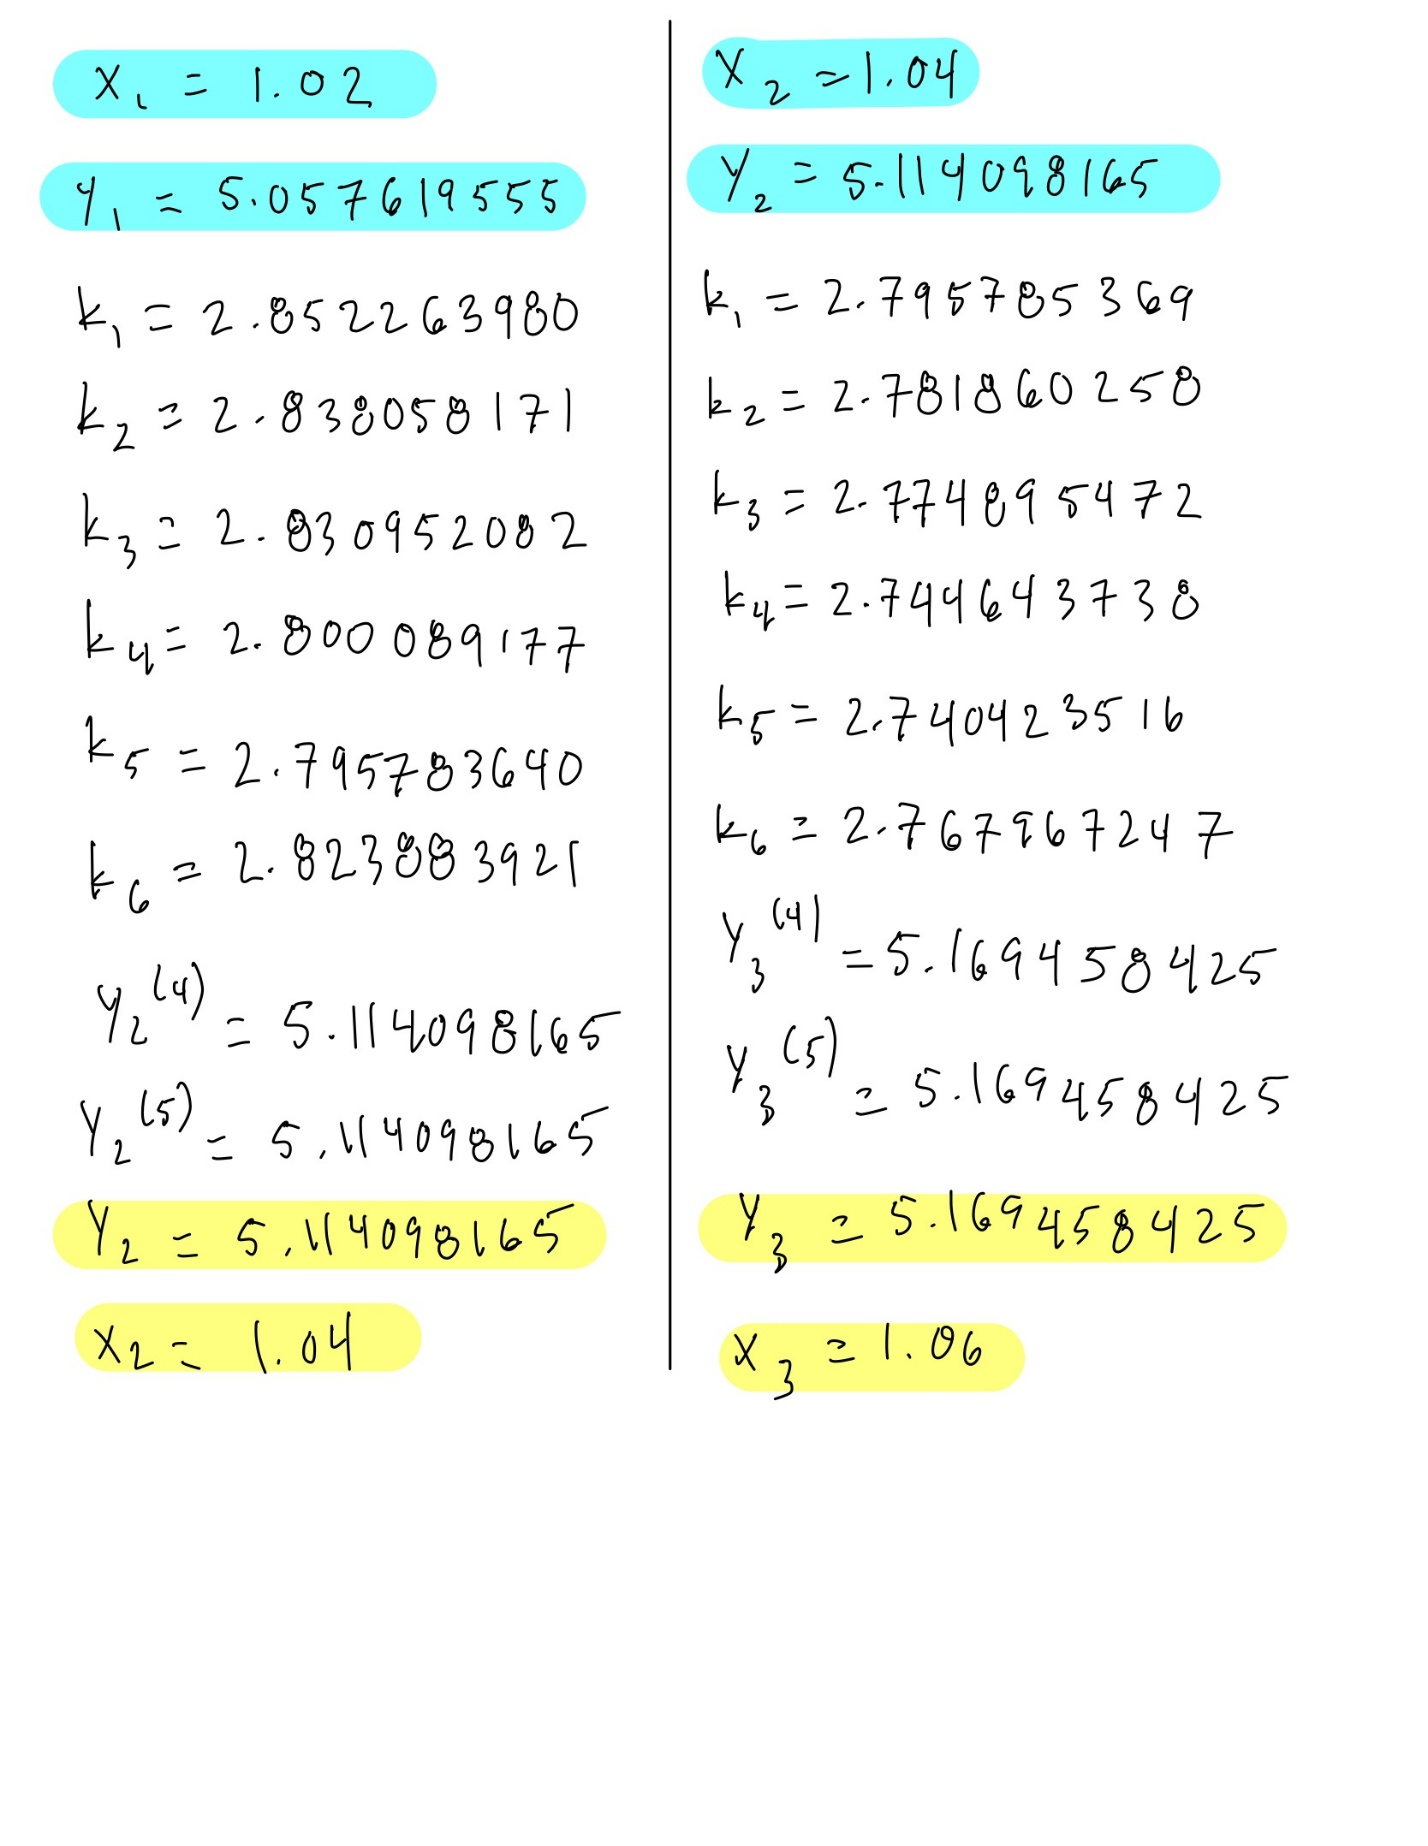 x₁ = 1.02
y₁ = 5.057619555
k₁ = 2.852263980
k₂ = 2.838058171
k₃ = 2.830952082
k₄ = 2.800089177
k₅ = 2.795783640
k₆ = 2.823883921
y₂⁽⁴⁾ = 5.114098165
y₂⁽⁵⁾ = 5.114098165
y₂ = 5.114098165
x₂ = 1.04
x₂ = 1.04
y₂ = 5.114098165
k₁ = 2.795785369
k₂ = 2.781860258
k₃ = 2.774895472
k₄ = 2.744643738
k₅ = 2.740423516
k₆ = 2.767967247
y₃⁽⁴⁾ = 5.169458425
y₃⁽⁵⁾ = 5.169458425
y₃ = 5.169458425
x₃ = 1.06